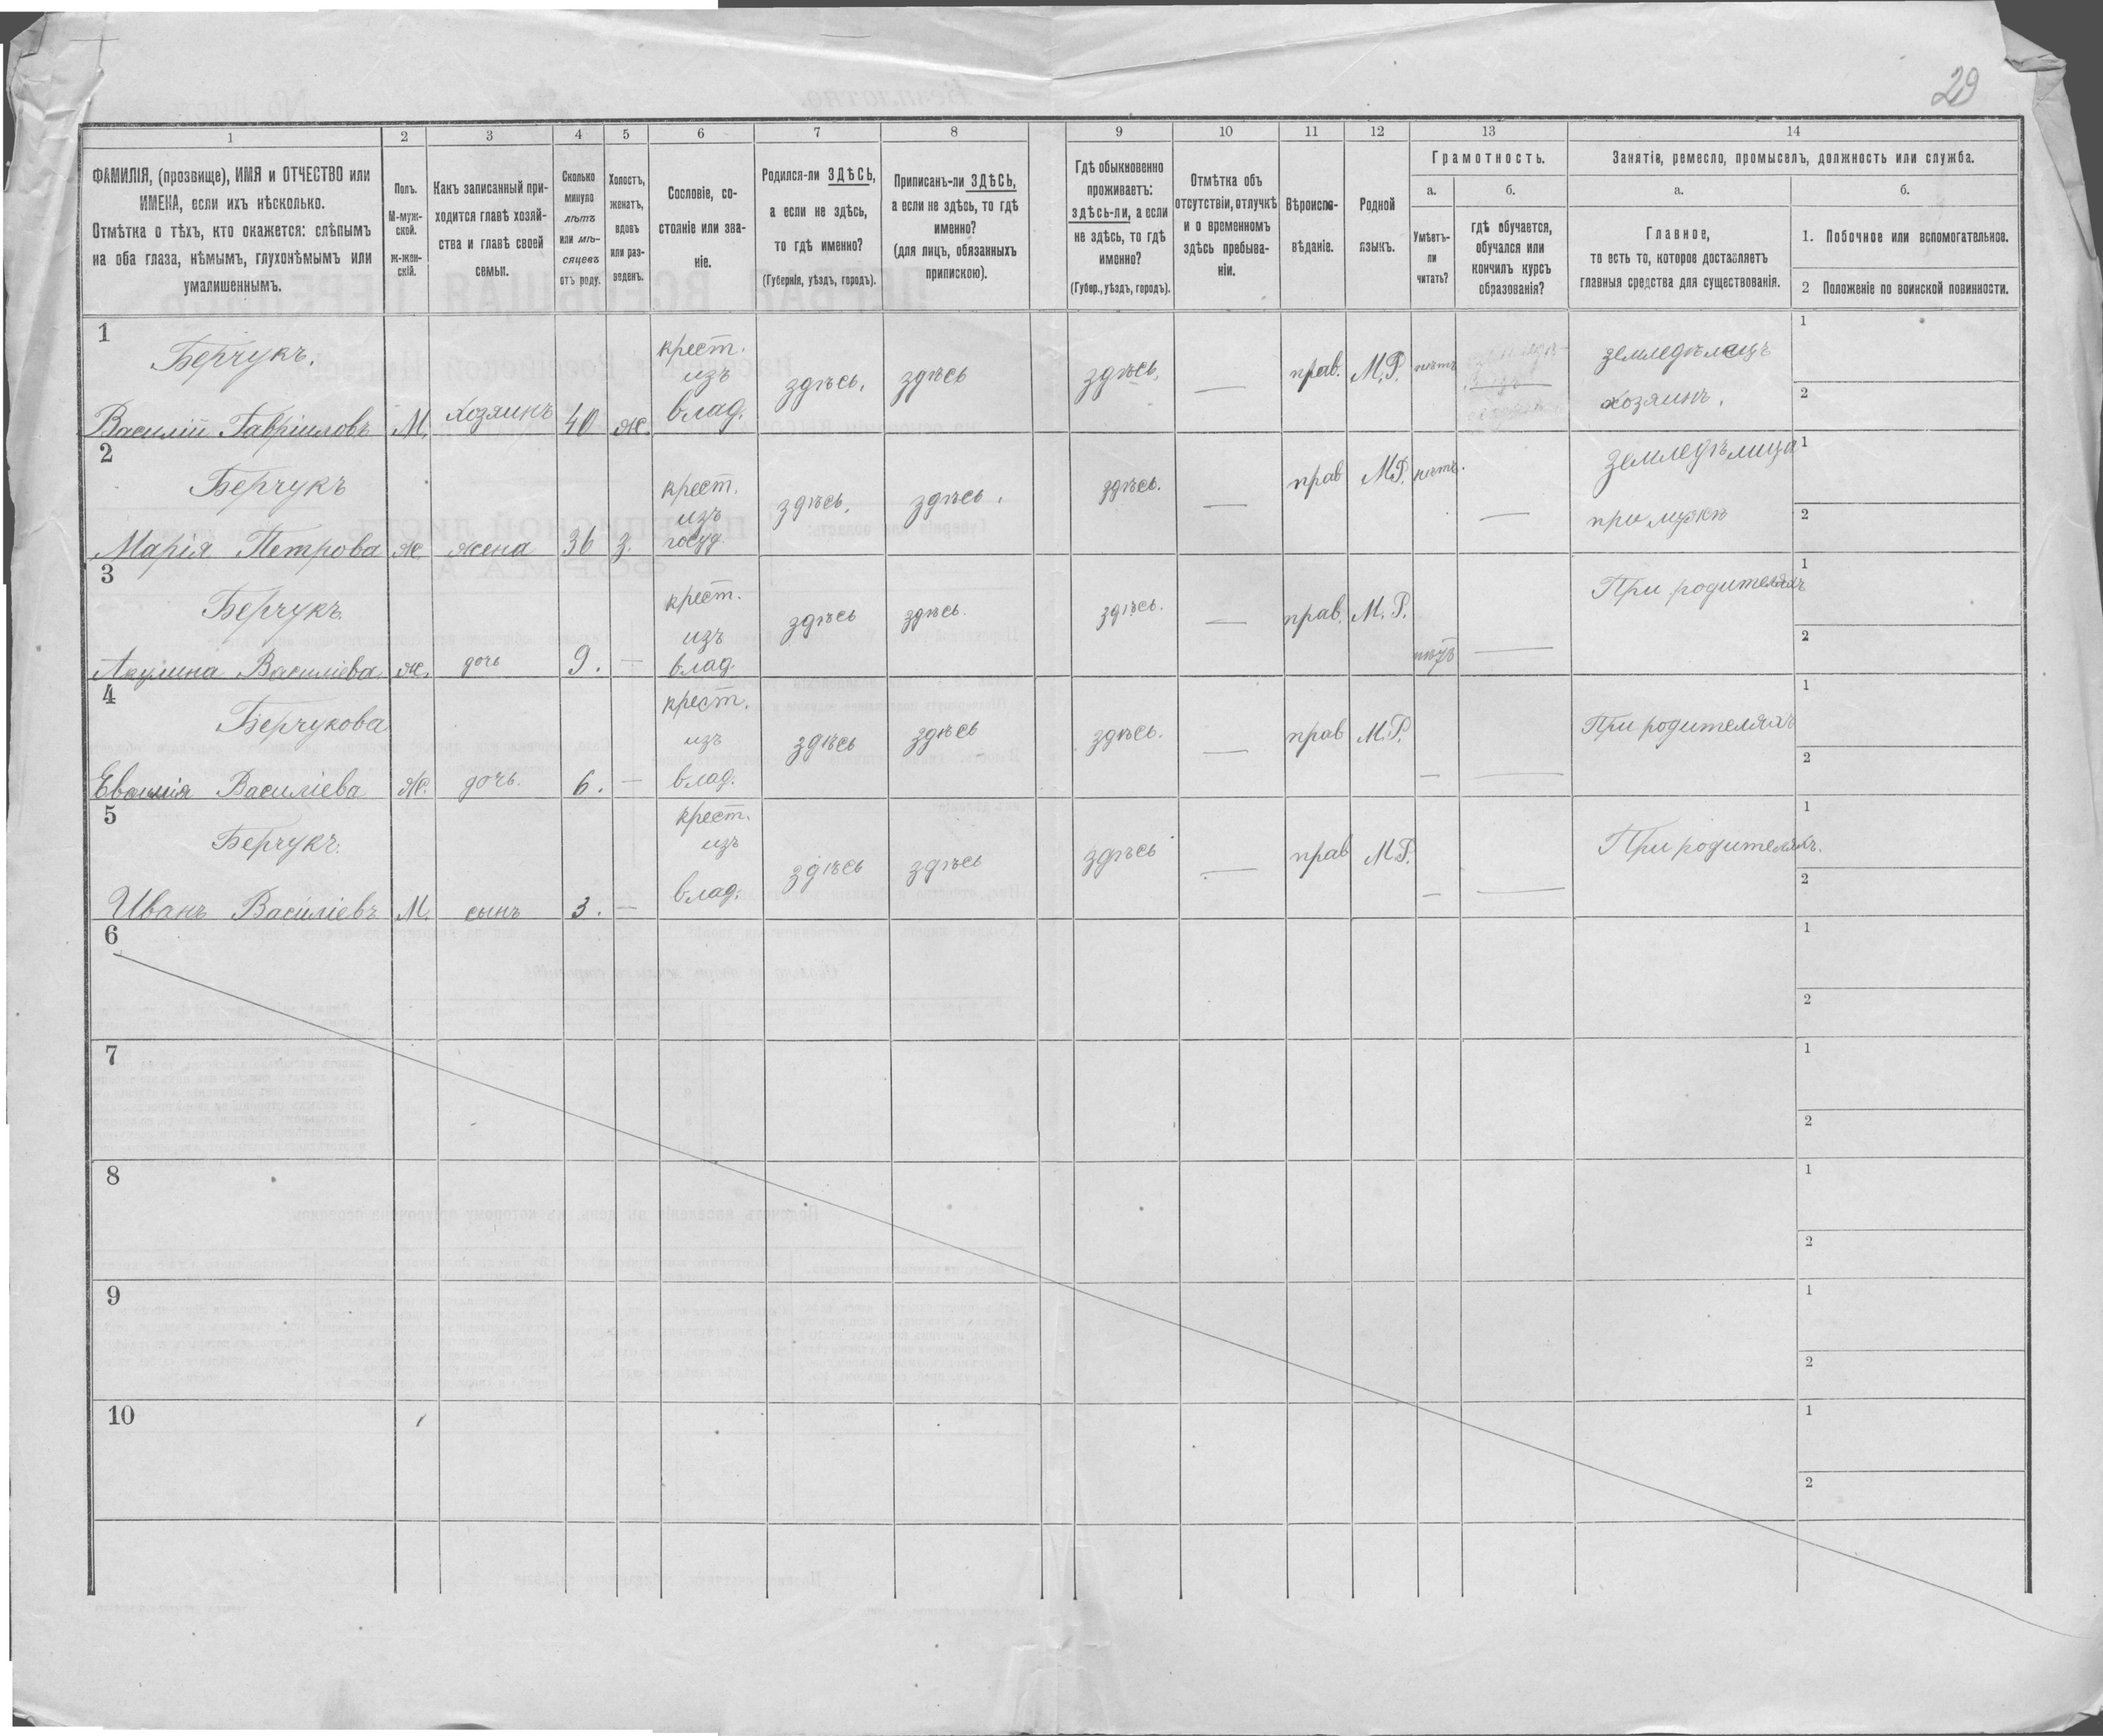 29
1 2 3 4 5 6 7 8 9 10 11 12 13 14
ФАМИЛІЯ, (прозвище), ИМЯ и ОТЧЕСТВО или
ИМЕНА, если ихъ нѣсколько.
Отмѣтка о тѣхъ, кто окажется: слѣпымъ
на оба глаза, нѣмымъ, глухонѣмымъ или
умалишеннымъ.
Полъ.
М-муж-
ской.
Ж-жен-
скій.
Какъ записанный при-
ходится главѣ хозяй-
ства и главѣ своей
семьи.
Сколько
минуло
лѣтъ
или мѣ-
сяцевъ
отъ роду.
Холостъ,
женатъ,
вдовъ
или раз-
веденъ.
Сословіе, со-
стояніе или зва-
ніе.
Родился-ли ЗДѢСЬ,
а если не здѣсь,
то гдѣ именно?
(Губернія, уѣздъ, городъ).
Приписанъ-ли ЗДѢСЬ,
а если не здѣсь, то гдѣ
именно?
(для лицъ, обязанныхъ
припискою).
Гдѣ обыкновенно
проживаетъ:
здѣсь-ли, а если
не здѣсь, то гдѣ
именно?
(Губер., уѣздъ, городъ).
Отмѣтка объ
отсутствіи, отлучкѣ
и о временномъ
здѣсь пребыва-
ніи.
Вѣроиспо-
вѣданіе.
Родной
языкъ.
Грамотность.
а.
Умѣетъ-
ли
читать?
б.
гдѣ обучается,
обучался или
кончилъ курсъ
образованія?
Занятіе, ремесло, промыселъ, должность или служба.
а.
Главное,
то есть то, которое доставляетъ
главныя средства для существованія.
б.
1. Побочное или вспомогательное.
2 Положеніе по воинской повинности.
1
Берчукъ.
Василій Гавріиловъ
М.
Хозяинъ
40
ж.
крест.
изъ
влад.
здѣсь.
здѣсь
здѣсь.
—
прав.
М.Р.
нѣтъ
земледѣлецъ
хозяинъ.
1
2
2
Берчукъ
Марія Петрова
ж
жена
36
з.
крест.
изъ
госуд.
здѣсь.
здѣсь.
здѣсь.
—
прав
М.Р.
нѣтъ.
—
земледѣлица
при мужѣ
1
2
3
Берчукъ
Акулина Василіева
ж.
дочь
9.
—
крест.
изъ
влад.
здѣсь
здѣсь.
здѣсь.
—
прав.
М. Р.
нѣтъ
—
При родителяхъ
1
2
4
Берчукова
Василіева
ж.
дочь.
6.
—
крест.
изъ
влад.
здѣсь
здѣсь
здѣсь.
—
прав
М.Р.
—
—
При родителяхъ
1
2
5
Берчукъ.
Иванъ Василіевъ
М.
сынъ
3.
—
крест.
изъ
влад.
здѣсь
здѣсь
здѣсь
—
прав
М.Р.
—
—
При родителяхъ.
1
2
6
1
2
7
1
2
8
1
2
9
1
2
10
1
2